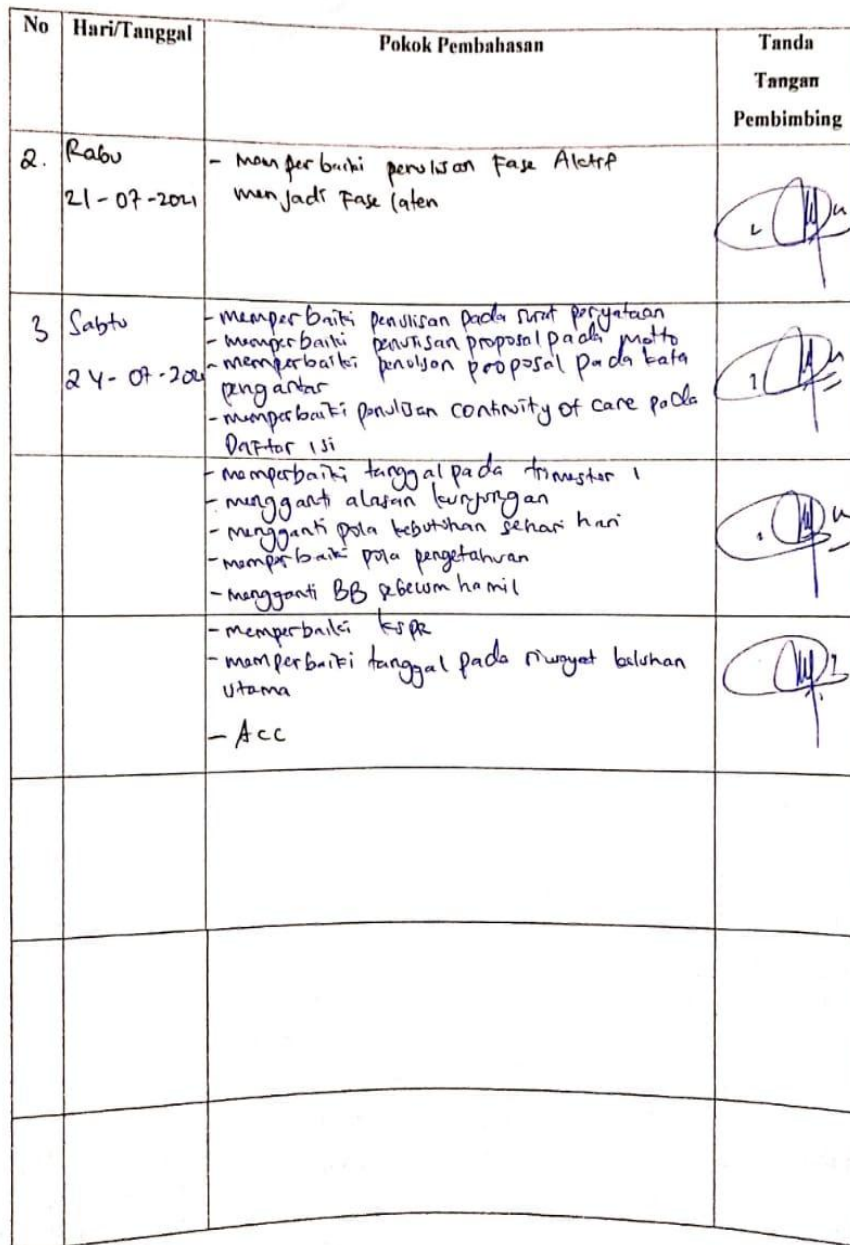 No Hari/Tanggal Pokok Pembahasan Tanda
Tangan
Pembimbing
2. Rabu - Memperbaiki penulisan Fase Aktif
21-07-2021 menjadi Fase laten
3 Sabtu - memperbaiki penulisan pada surat peryataan
- memperbaiki penulisan proposal pada motto
24-07-2021 - memperbaiki penulisan proposal pada kata
pengantar
- memperbaiki penulisan continuity of care pada
Daftar isi
- memperbaiki tanggal pada trimester 1
- mengganti alasan kunjungan
- mengganti pola kebutuhan sehari hari
- memperbaiki pola pengetahuan
- mengganti BB sebelum hamil
- memperbaiki kspr
- memperbaiki tanggal pada riwayat keluhan
utama
- Acc